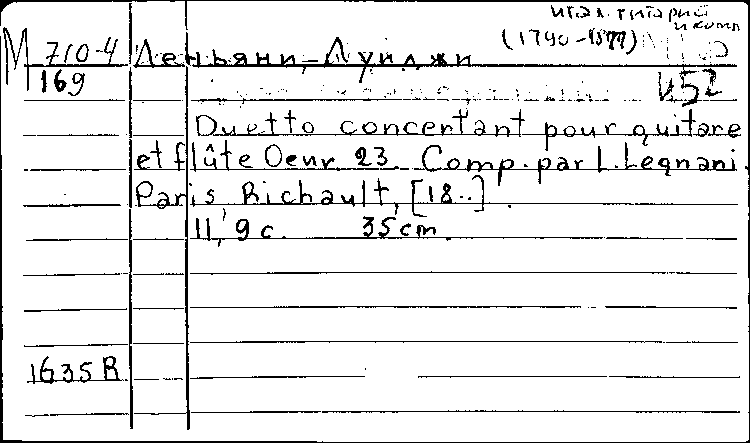 итал. гитарист
и комп
М 710-4 Леньяни, Луиджи (1790-1877)
169
И52
Duetto concertant pour guitare
et flûte Oeuv. 23. Comp. par L. Legnani.
Paris Richault, [18..].
11, 9 с. 35 cm.
1635 R